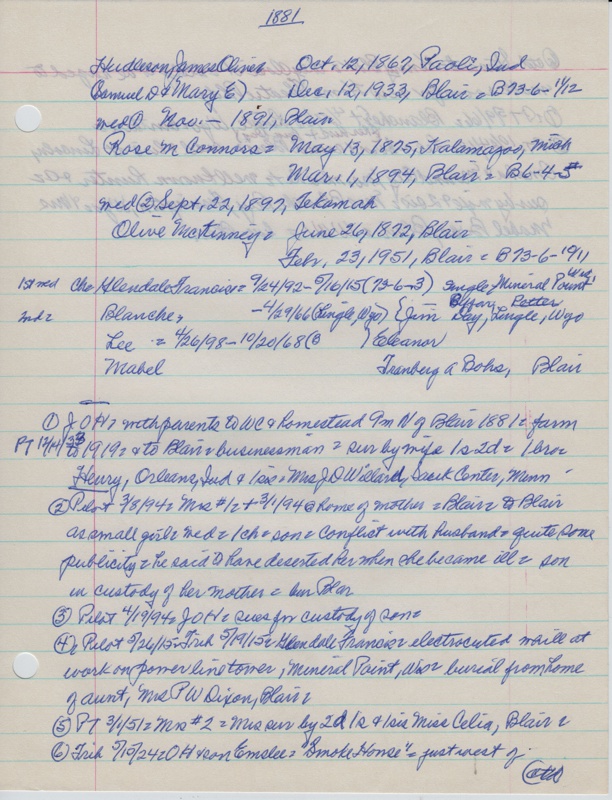 1881
Hudleson, James Oliver Oct. 12, 1867, Paoli, Ind
(Samuel D & Mary E) Dec. 12, 1933, Blair = B73-6-1/12
med ① Nov. — 1891, Blair
Rose M Connors = May 13, 1875, Kalamazoo, Mich
Mar. 1, 1894, Blair = B6-4-5
med ② Sept. 22, 1897, Tekamah
Olive McKinney = June 26, 1872, Blair
Febr. 23, 1951, Blair = B73-6-1/11
1st med Ch = Glendale Francis = 9/24/92 - 5/16/15 (73-6-3) single, Mineral Point, Wis
2nd = Blanche = - 4/29/66 (Lingle, Wyo) { Jim Day, Lingle, Wyo
Potter
Lee = 4/26/98 - 10/20/68 (B ) Eleanor
Mabel Franberg A Bohs, Blair
① JOH = with parents to WC & homestead 9 m N of Blair 1881 = farm
PT 12/14/33 to 1919 = & to Blair = businessman = sur by wife 1s 2d = 1 bro =
Henry, Orleans, Ind & 1 sis = Mrs J D Willard, Sauk Center, Minn
② Pilot 3/8/94 = Mrs #1 = + 3/1/94 @ home of mother = Blair = to Blair
as small girl = med = 1ch = son = conflict with husband = quite some
publicity = he said to have deserted her when she became ill = son
in custody of her mother = bur Blair
③ Pilot 4/19/94 = JOH = sues for custody of son =
④ Pilot 5/26/15 = Trib 5/19/15 = Glendale Francis = electrocuted while at
work on power line tower, Mineral Point, Wis = burial from home
of aunt, Mrs P W Dixon, Blair =
⑤ PT 3/1/51 = Mrs #2 = Mrs sur by 2d 1s & 1 sis Miss Celia, Blair =
⑥ Trib 5/15/24 = OH & son Emslee = "Smoke House" = just west of